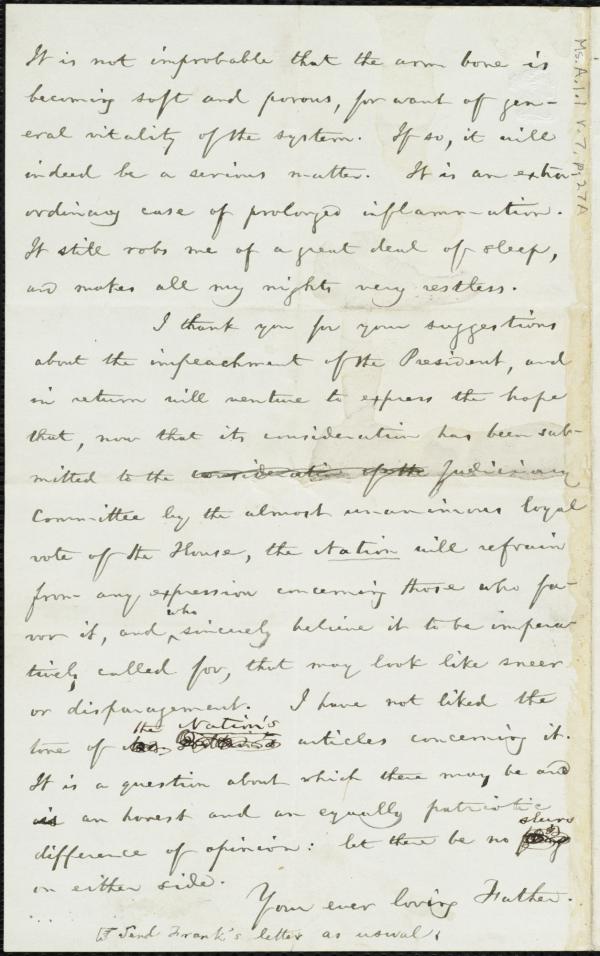 It is not improbable that the arm bone is
becoming soft and porous, for want of gen-
eral vitality of the system. If so, it will
indeed be a serious matter. It is an extra-
ordinary case of prolonged inflammation.
It still robs me of a great deal of sleep,
and makes all my nights very restless.
I thank you for your suggestions
about the impeachment of the President, and
in return will venture to express the hope
that, now that its consideration has been sub-
mitted to the consideration of the Judiciary
Committee by the almost unanimous loyal
vote of the House, the Nation will refrain
from any expression concerning those who fa-
vor it, and who sincerely believe it to be impera-
tively called for, that may look like sneer
or disparagement. I have not liked the
tone of the Nation's articles concerning it.
It is a question about which there may be and
is an honest and an equally patriotic
difference of opinion: let there be no slurs
on either side.
Your ever loving Father.
Send Frank's letter as usual.
Ms. A.1.1 v. 7, p. 27A